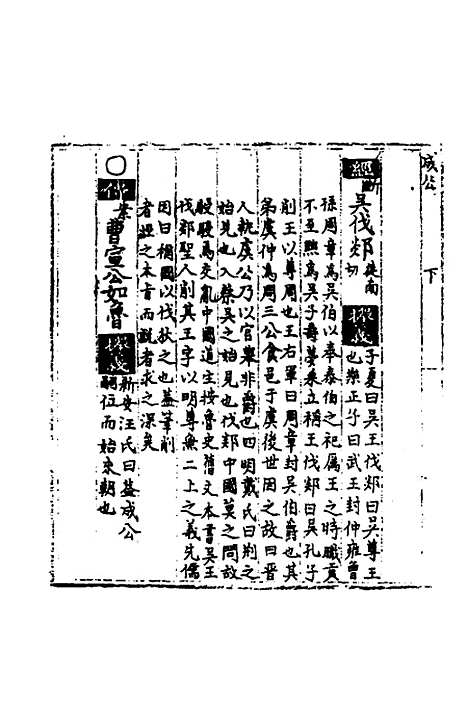 成公
下
經 斷 吳伐郯 徒甘切 擬義 子夏曰吳王伐郯曰吳尊王
也樂正子曰武王封仲雍曾
孫周章爲吳伯以奉泰伯之祀厲王之時職貢
不至黜爲吳子壽夢來立稱王伐郯曰吳孔子
削王以尊周也王石軍曰周章封吳伯爵也其
弟虞仲爲周三公食邑于虞後世因之故曰晉
人執虞公乃以官舉非爵也四明戴氏曰荆之
始見也入蔡吳之始見也伐郯中國莫之問故
駸駸爲交亂中國道主按魯史舊文本書吳王
伐郯聖人削其王字以明尊無二上之義先儒
因曰稱國以伐狄之也蓋筆削
者誣之本旨而説者求之深矣
○ 傳 業 曹宣公如魯 擬義 新安汪氏曰蓋成公
嗣位而始來朝也